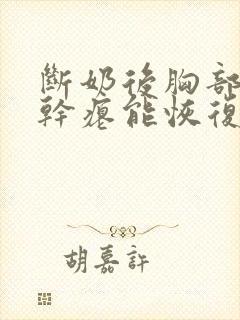 斷奶後胸部
幹瘪能恢復
胡嘉許